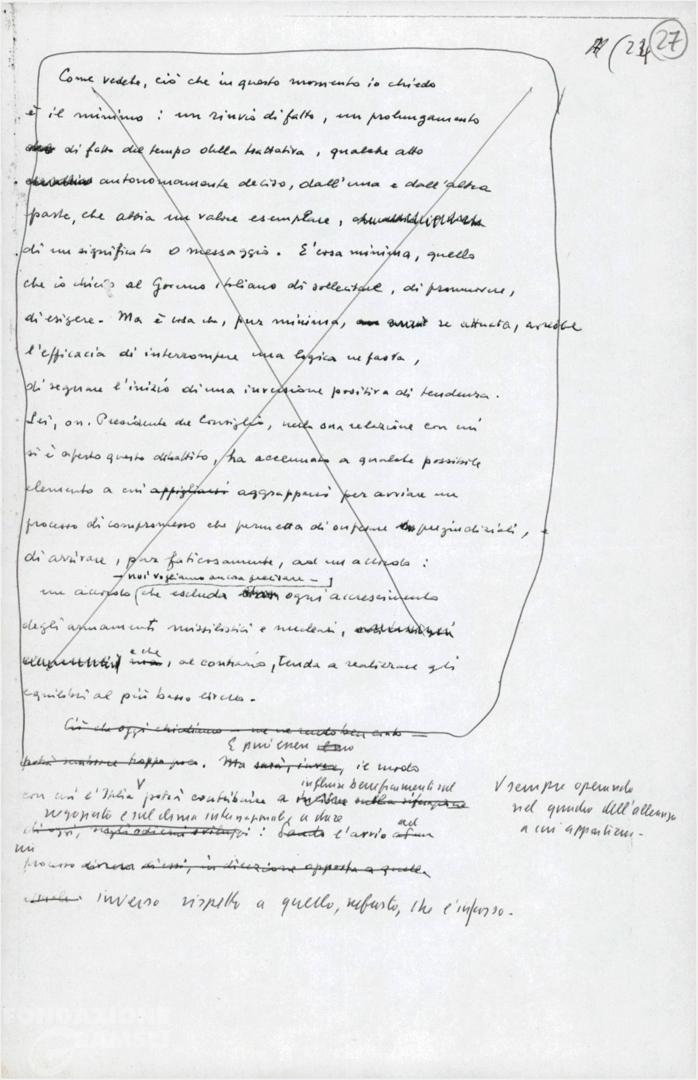 (23/4 27
Come vedete, ciò che in questo momento io chiedo
è il minimo: un rinvio di fatto, un prolungamento
di fatto del tempo della trattativa, qualche atto
autonomamente deciso, dall'una e dall'altra
parte, che abbia un valore esemplare,
di un significato o messaggio. E' cosa minima, quello
che io chiedo al Governo italiano di sollecitare, di promuovere,
di esigere. Ma è cosa che, pur minima, se attuata, avrebbe
l'efficacia di interrompere una logica nefasta,
di segnare l'inizio di una inversione positiva di tendenza.
Lei, on. Presidente del Consiglio, nella sua relazione con cui
si è aperto questo dibattito, ha accennato a qualche possibile
elemento a cui appigliarsi aggrapparsi per avviare un
processo di compromesso che permetta di superare pregiudiziali, e
di arrivare, pur faticosamente, ad un accordo:
– noi vogliamo ancora precisare –
un accordo che escluda ogni accrescimento
degli armamenti missilistici e nucleari,
e che
ma, al contrario, tenda a realizzare gli
equilibri al più basso livello.
Ciò che oggi chiediamo – me ne rendo ben conto –
E' può essere
potrà sembrare troppo poco. Ma sarà, invece, il modo
influire beneficamente sul
con cui l'Italia V potrà contribuire a incidere sulla
V sempre operando
nel quadro dell'alleanza
a cui appartiene.
negoziato e sul clima internazionale e dare
di oggi, sugli odierni sviluppi: dando l'avvio ad un
un
processo diverso di essi, in direzione opposta a quella
attuale. inverso rispetto a quello, nefasto, che è in corso.
FONDAZIONE
GRAMSCI